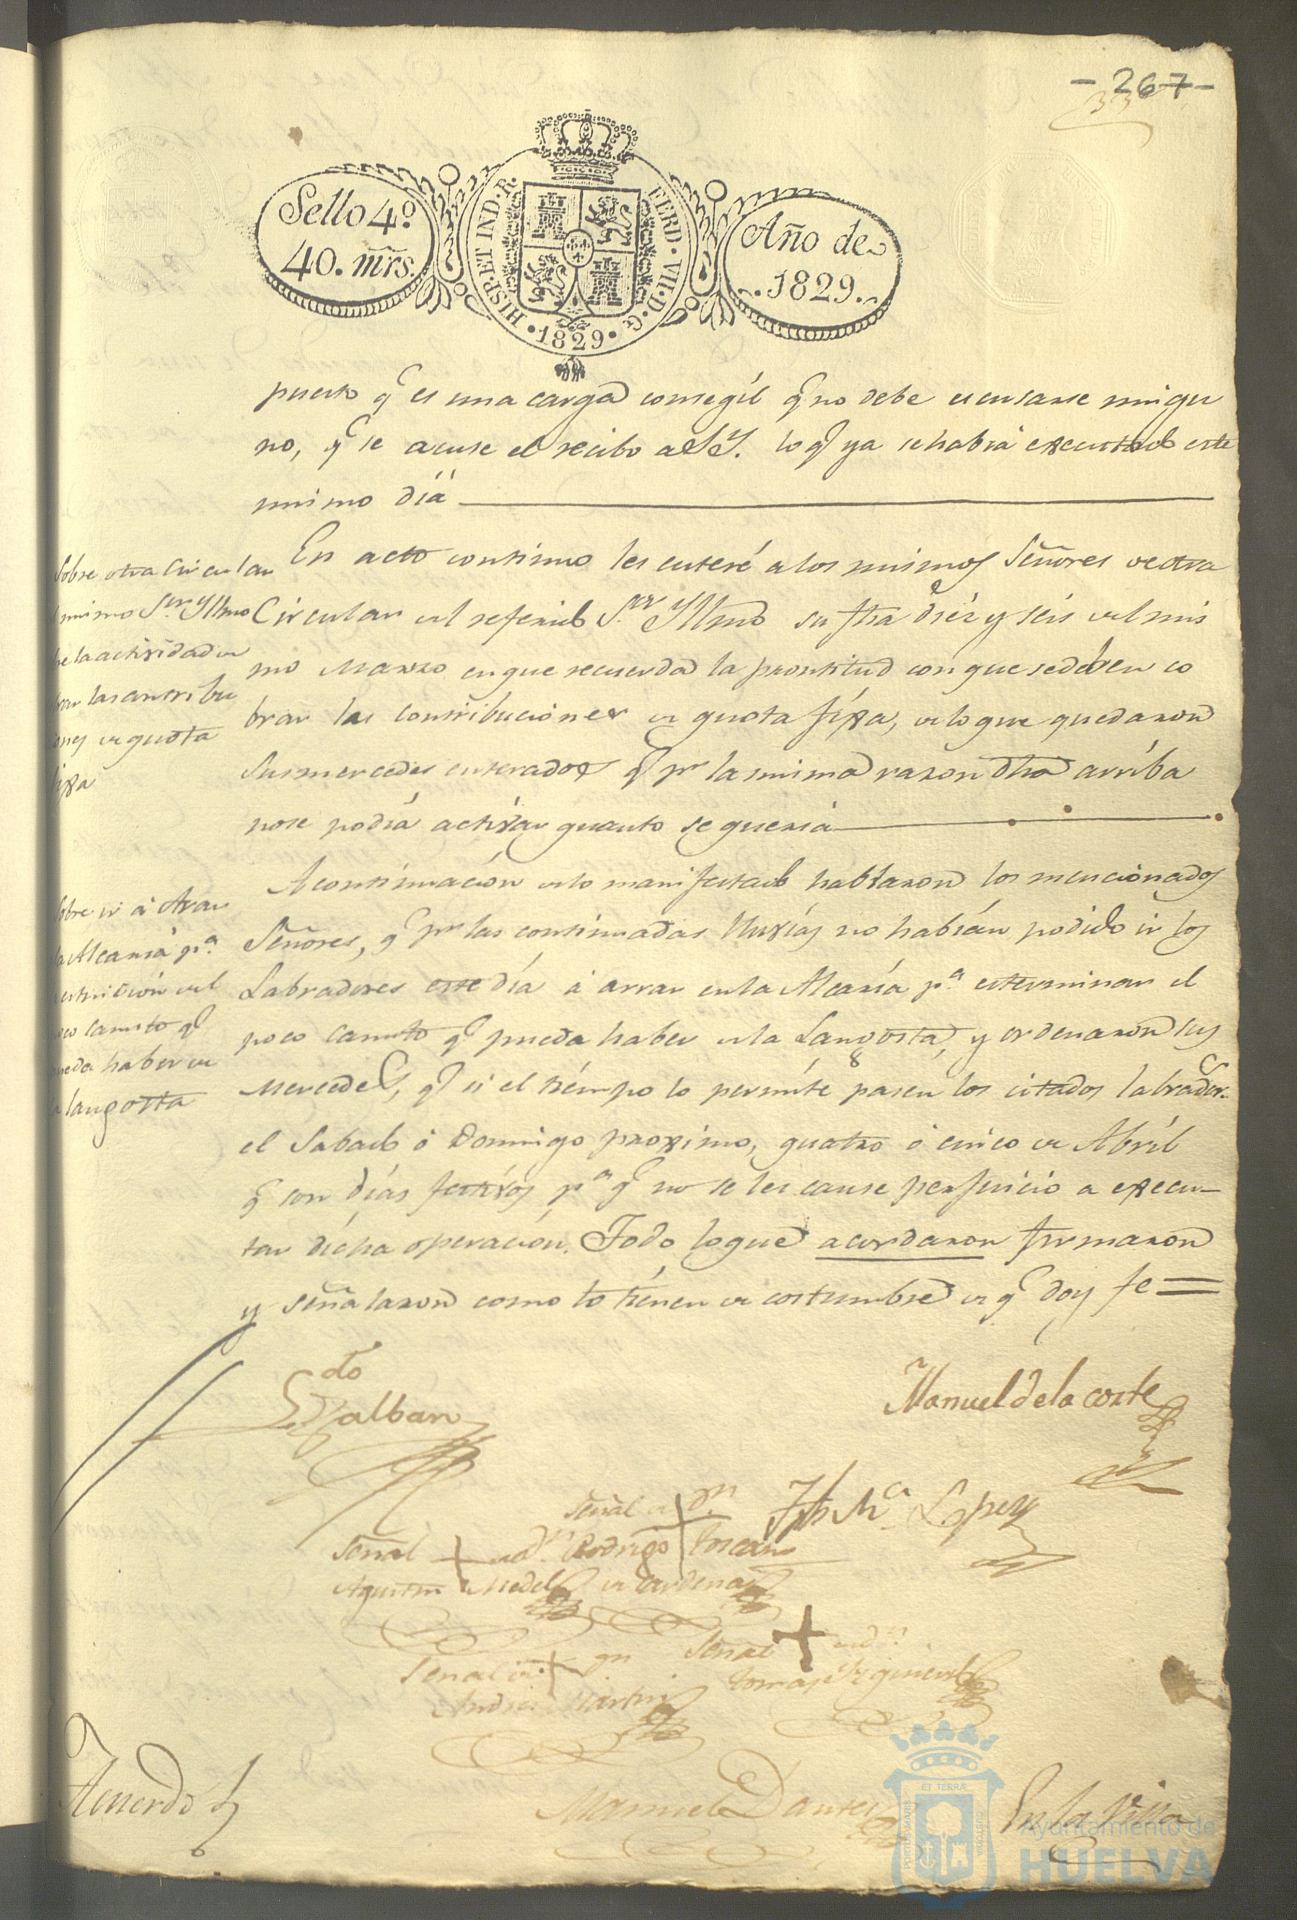 - 267 -
33
Sello 4º
40. mrs.
HISP. ET IND. R.
FERD. VII. D. G.
1829
Año de
1829.
puesto q.e es una carga consegíl q.e no debe escusarse ningu
no, q.e se acuse el recibo a S.Y. lo q.e ya se habiá executado este
mismo diá
Sobre otra Circular
mismo Sr. Yllmo
la actividad en
brar las contribu
ones de quota
fixa
En acto continuo les enteré a los mismos Señores de otra
Circular del referido Sr. Yllmo su fha diéz y seis del mis
mo Marzo en que recuerda la prontitud con que se deben co
brar las contribuciones de quota fixa, de lo que quedaron
sus mercedes enterados q.e p.r la misma razon dha arriba
no se podiá activar quanto se queriá
Sobre ir á Arar
la Alcariá p.a
estincion del
poco canuto q.e
pueda haber de
langosta
A continuación de lo manifestado hablaron los mencionados
Señores, q.e p.r las continuadas lluvias no habián podido ir los
Labradores este día á arrar en la Alcaría p.a esterminar el
poco canuto q.e pueda haber de la Langosta, y ordenaron sus
Mercedes, q.e si el tiémpo lo permíte pasen los citados labrador.s
el Sabado ó Domingo proximo, quatro ó cinco de Abríl
q.e son días festívos p.a q.e no se les cause perjuicio a execu-
tar dicha operación. Todo lo que acordaron firmaron
y señalaron como lo tienen de costumbre de q.e doy fe =
Ldo
Valban
Manuel de la corte
Señal de Dn
Rodrigo Toscano
de Cardenas
M.a Lopez
Señal de D.n
Agustin Medel
Señal de
Andres Martin
Señal de D.n
Tomas Izquierdo
Manuel Dantes
Acuerdo
En la Villa
PORTUS MARIS
ET TERRAE
CUSTODIA
Ayuntamiento de
HUELVA